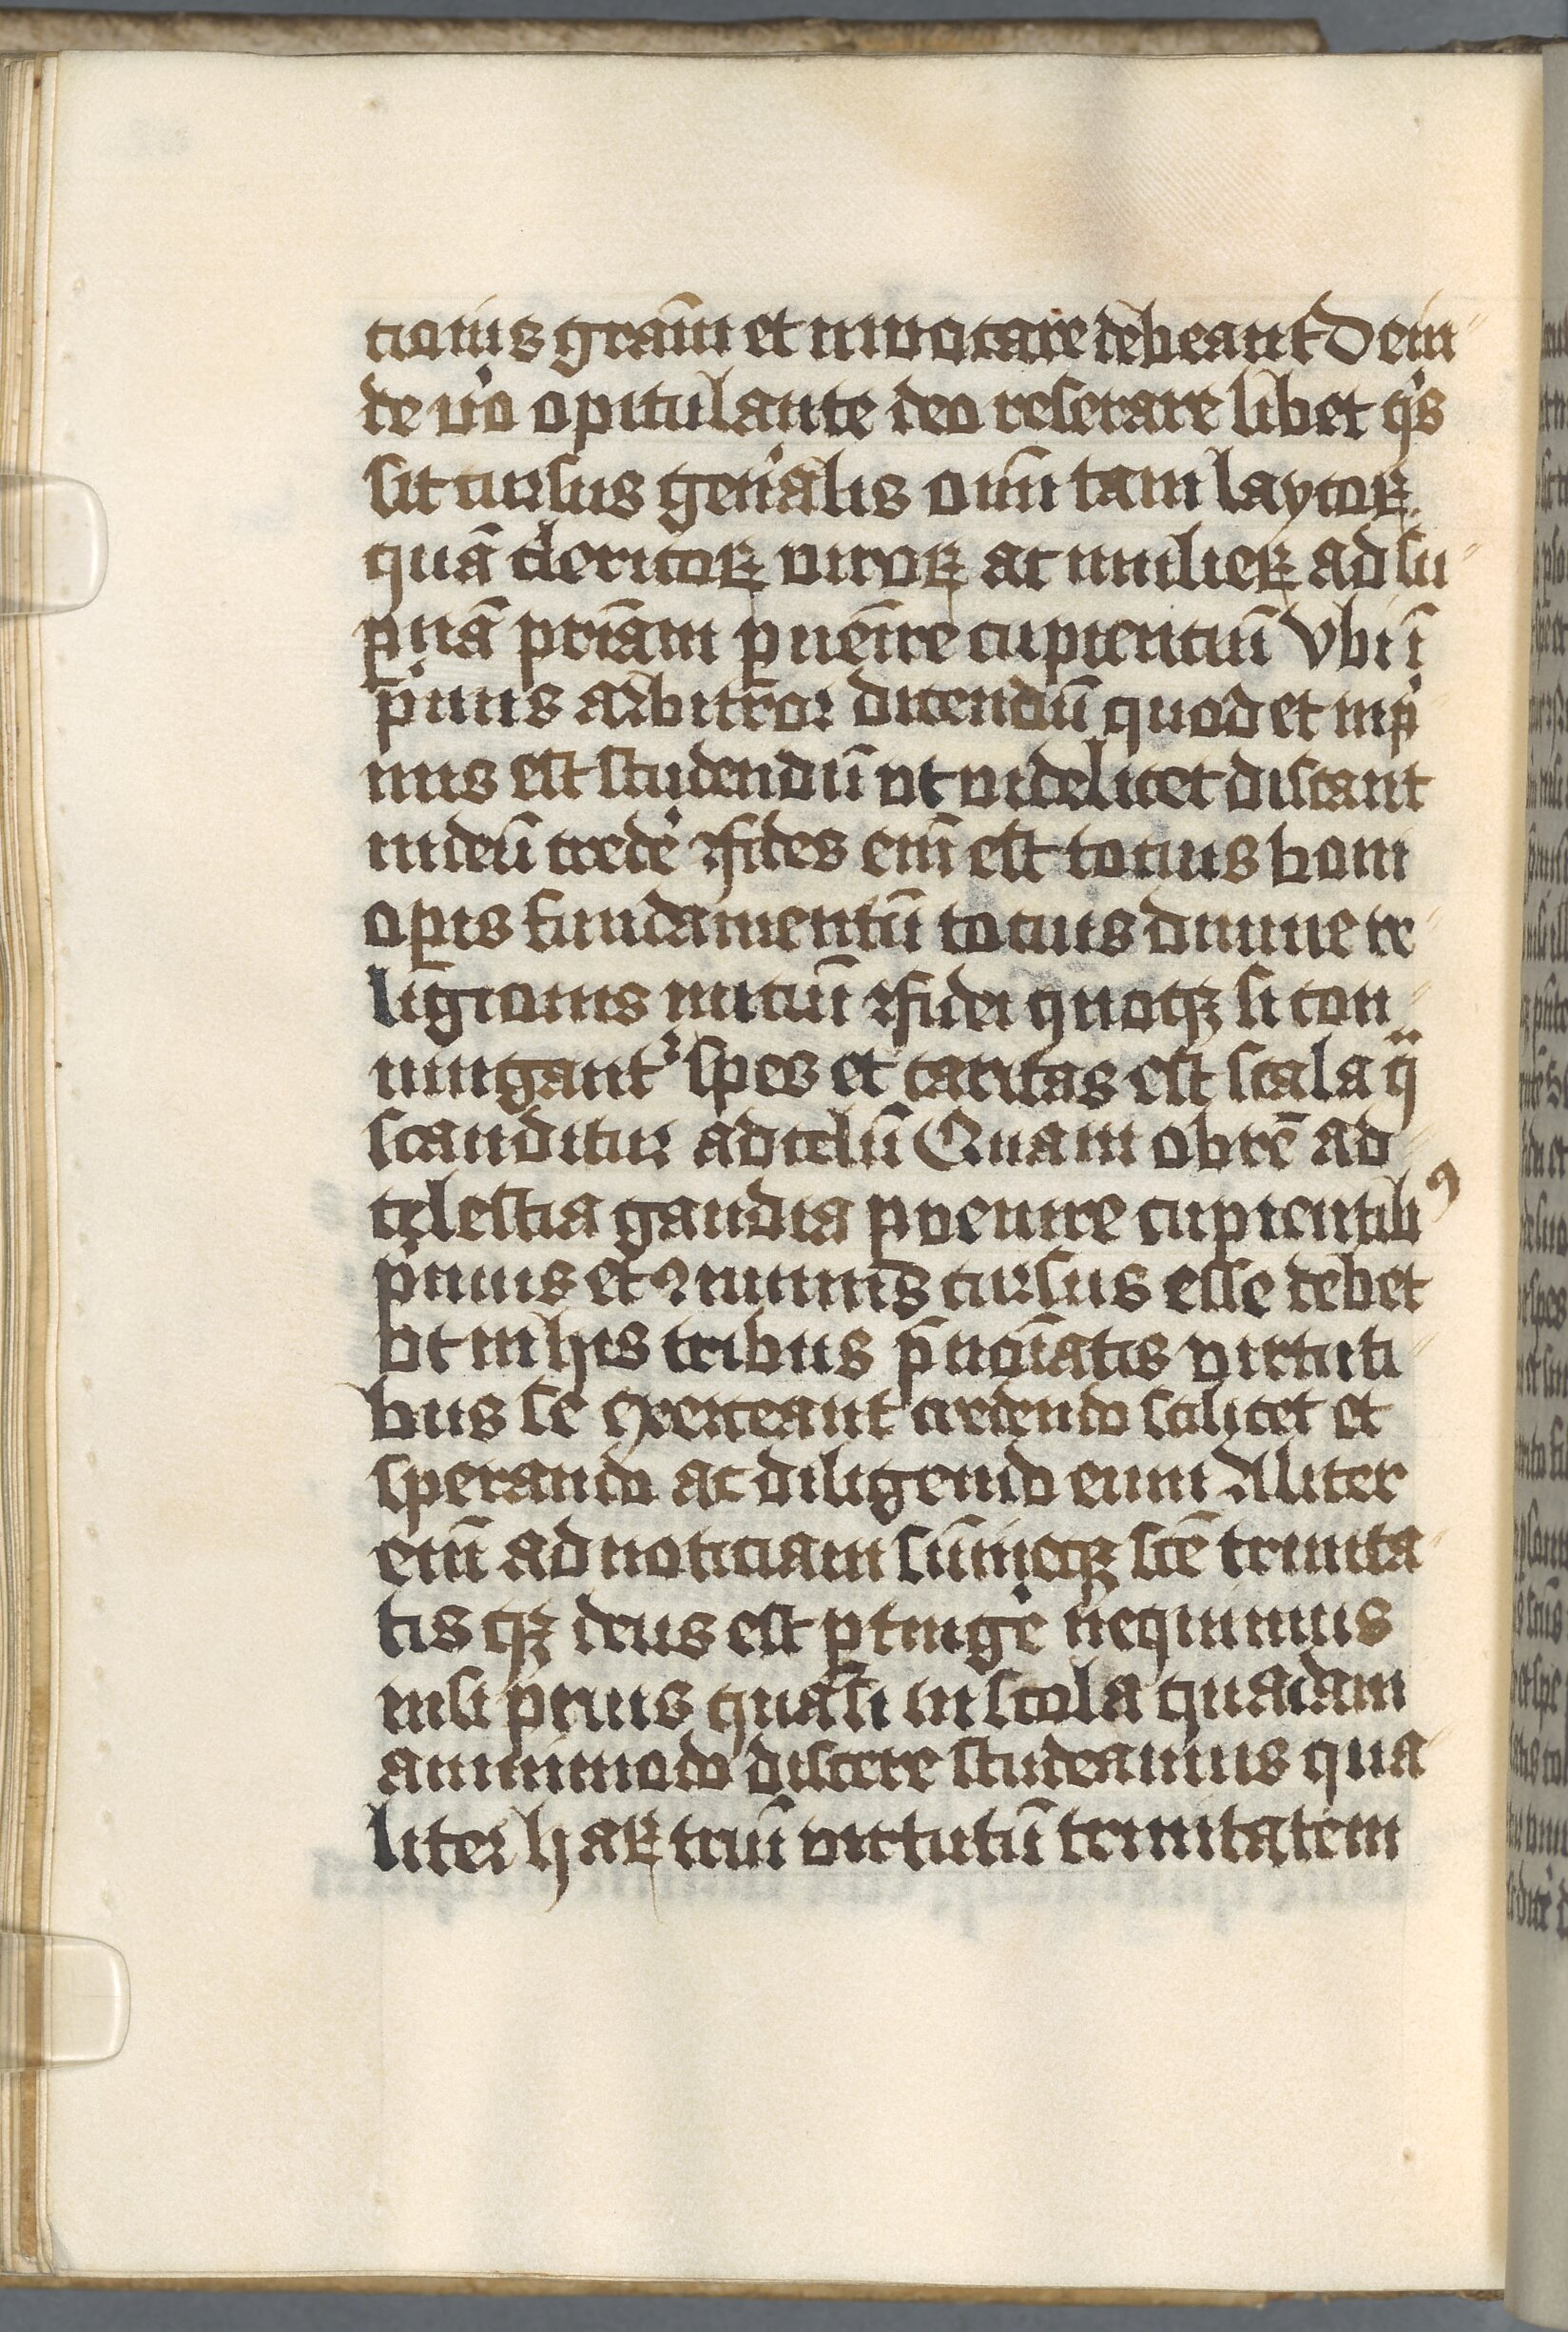 cionis gr̄am et invocare debeant Dein
de vͦo opitulante deo reserare libet qͥs
sit cursus gen̄alis om̄i tam laycoꝝ
quā clericoꝝ viroꝝ ac mulieꝝ ad su
ꝑnā pr̄iam ꝑuēire cupientiū Vbi ī
pͥmis arbitror dicendū quod et inpͥ
mis est studendū vt videlicet discant
in deū crede᷒ Fides em̄ est tocius boni
oꝑis fundamentū tocius divine re
ligionis initiū Fidei quoqꝫ si con
iungantᷣ spes et caritas est scala qͣ
scanditur ad celū Quam ob rē ad
celestia gaudia ꝑvenire cupientibꝰ
pͥmus et ꝯmunis cursus esse debet
vt in his tribus p̄no͞iatis virtuti
bus se exerceant credendo scilicet et
sperando ac diligendo eum Aliter
em̄ ad noticiam sūmeqꝫ scē trinita
tis qꝫ deus est ꝑtinge᷒ nequimus
nisi prius quasi in scola quadam
ammimodo discere studeamus qua
liter haꝝ triū virtutū trinitatem